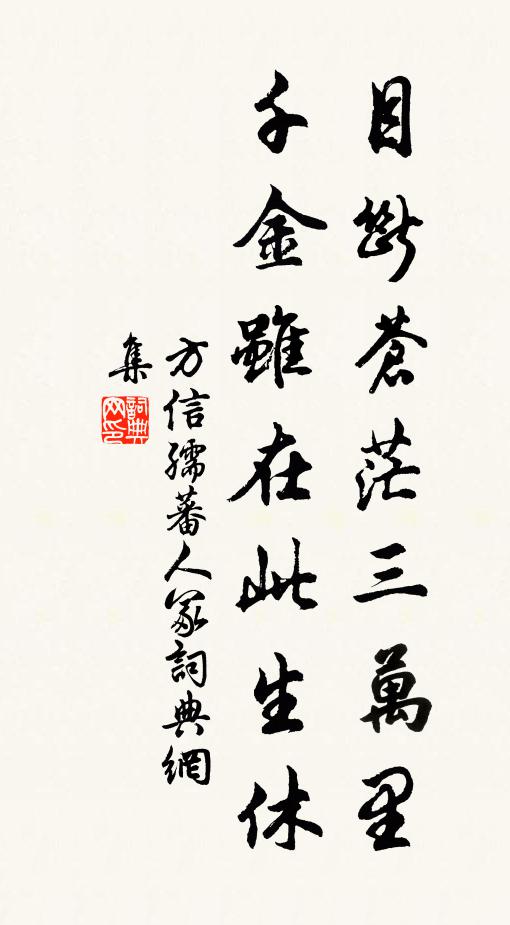 目斷蒼茫三萬里
千金雖在此生休
方信孺蕃人冢詞典網
集
詞典
网印